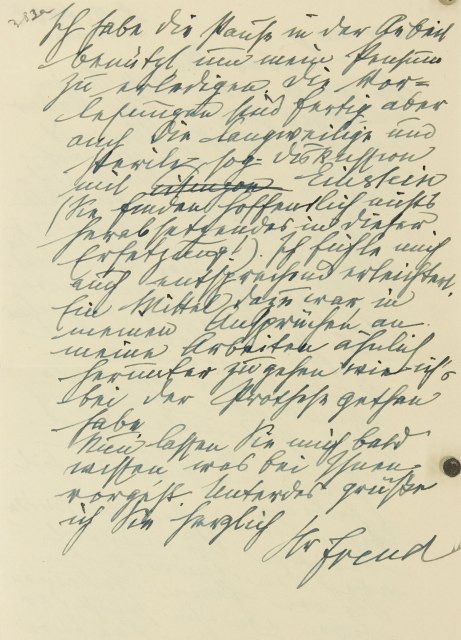 Ich habe die Pause in der Arbeit
benützt um mein Pensum
zu erledigen. Die Vor-
lesungen sind fertig aber
auch die langweilige und
sterile sog. Diskussion
mit Einstein
(Sie finden hoffentlich nichts
herabsetzendes in dieser
Ersetzung!). Ich fühle mich
auch entsprechend erleichtert.
Ein Mittel dazu war in
meinen Ansprüchen an
meine Arbeiten ähnlich
herunter zu gehen wie ich's
bei der Prothese gethan
habe.
Nun lassen Sie mich bald
wissen was bei Ihnen
vorgeht. Unterdes grüße
ich Sie herzlich
Ihr Freud